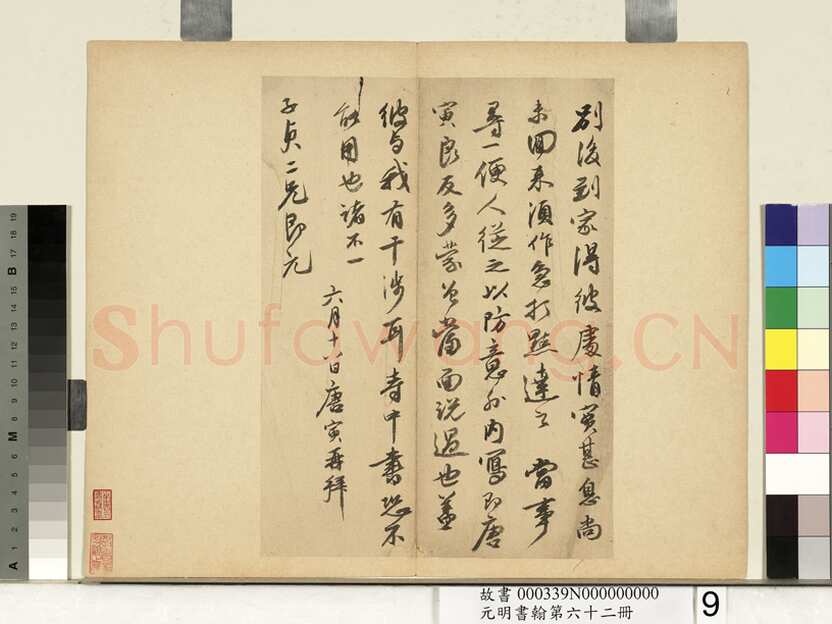 別後到家得彼處情實甚急尚
未回來須作急打點達之 當事
尋一便人從之以防意外內寫即唐
寅良友多蒙 當面説過也蓋
彼與我有干涉耳 書恐不
能用也諸不一
六月十 日唐寅再拜
子貞二兄即元
Shufawang.CN
故書 000339N000000000
元明書翰第六十二冊
9
A 1 2 3 4 5 6 M 8 9 10 11 12 13 14 15 B 17 18 19